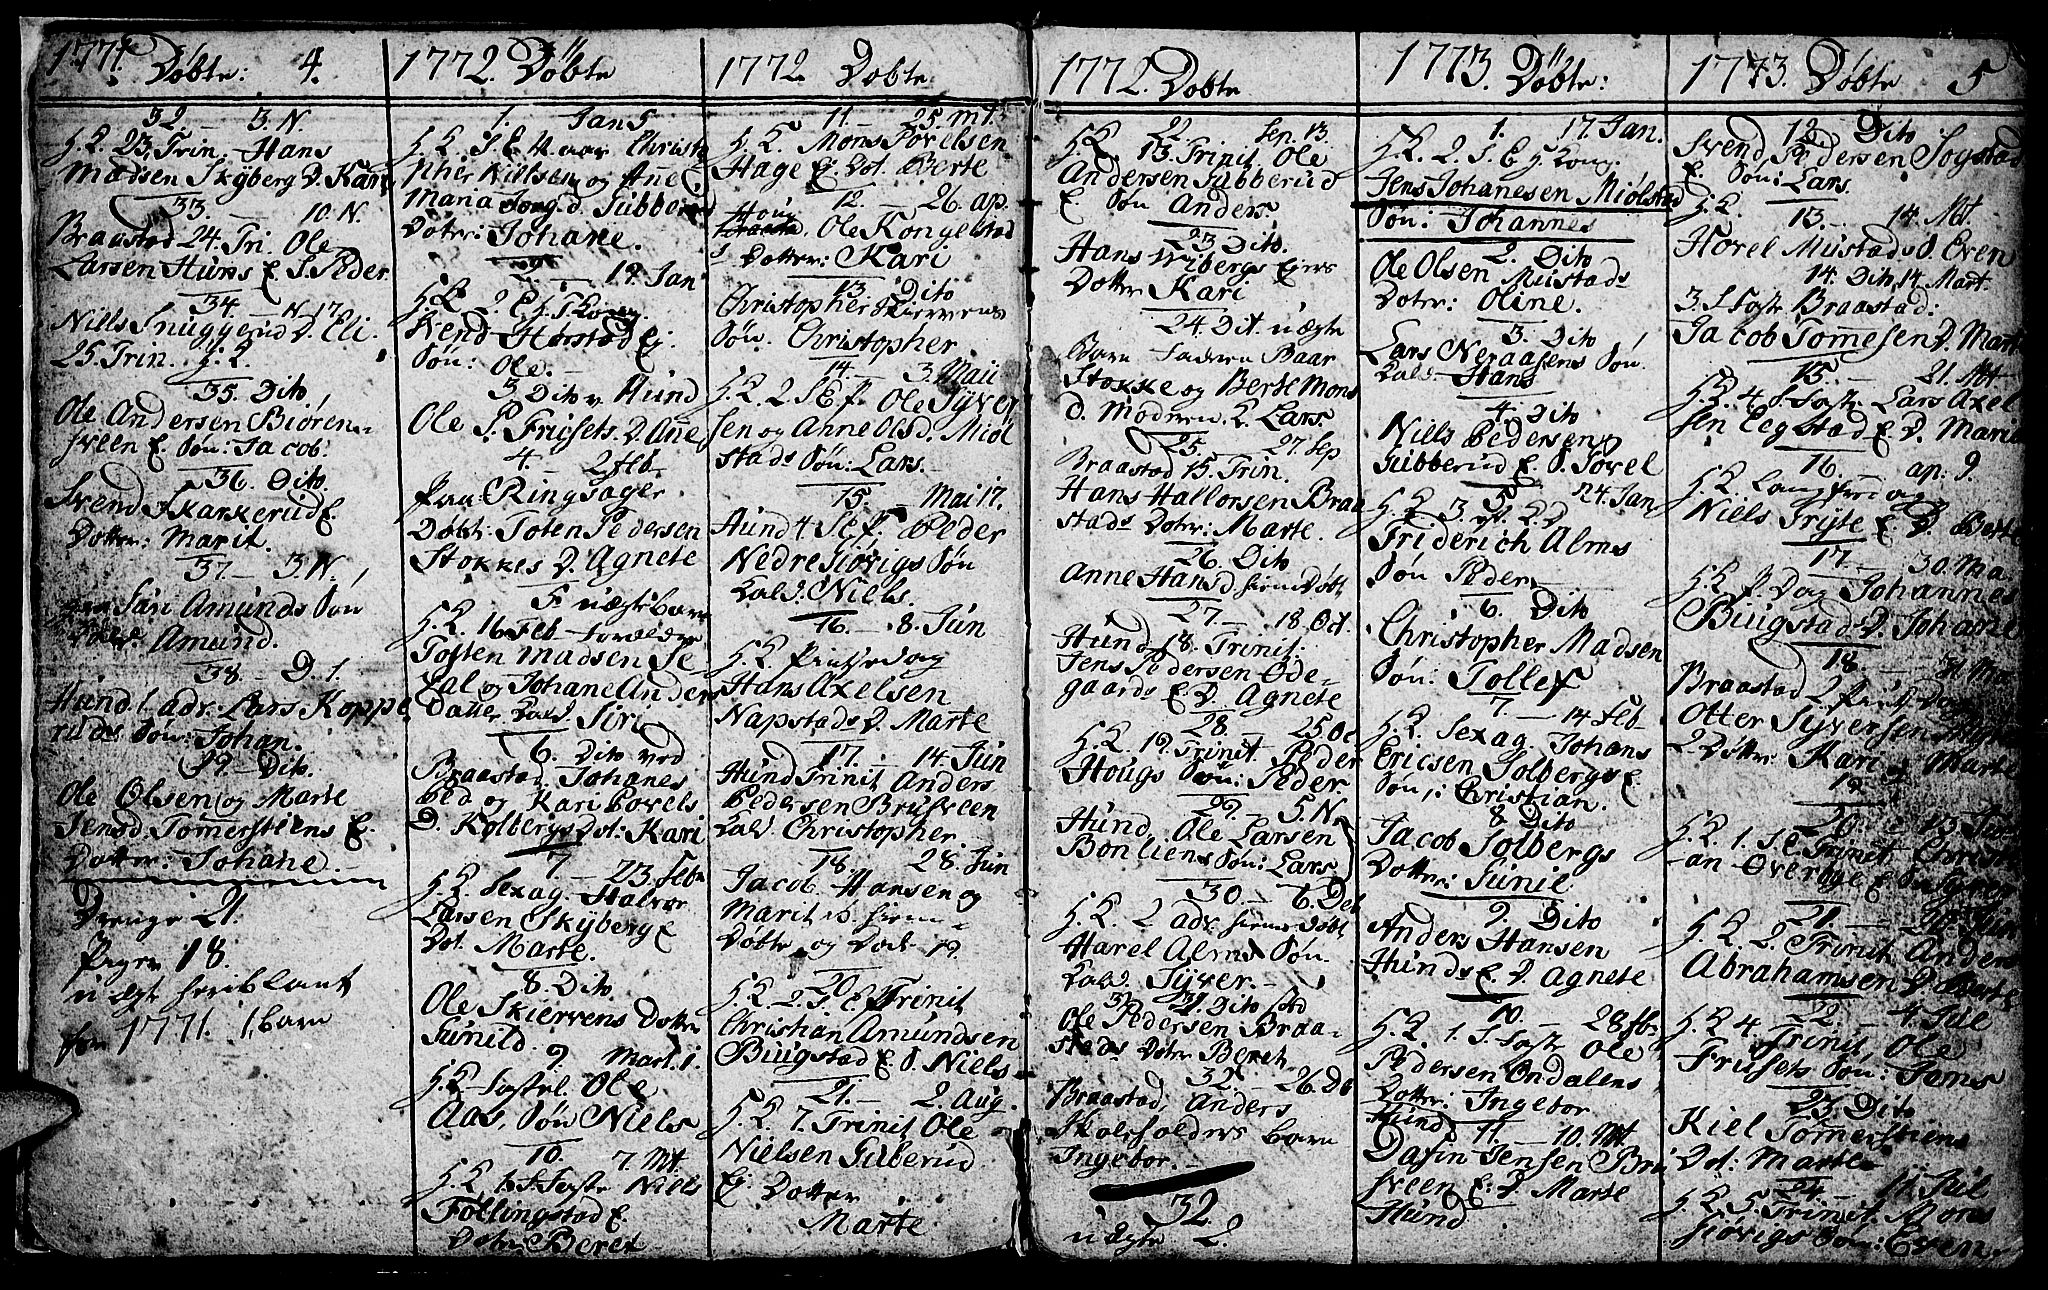 1771. Døbte: 4.
32 — 3. N.
H. K. 23, Trin. Hans
Madsen Skÿberg D. Kari
33. — 10. N.
Braastad 24. Tri. Ole
Larsen Huns E. S. Peder
34. — N. 17.
Nills Snuggerud D. Eli.
25. Trin. H. K.
35. Dito
Ole Andersen Biøren-
sveen E. Søn: Jacob.
36. Dito.
Svend Skarkerud E.
Dotter: Marit.
37 — 3. N.
Amunds Søn
Kald. Amund.
38. — D. 1.
Hund 1. adv: Lars Koppe
ruds Søn: Johan.
39 — Dito.
Ole Olsen og Marte
Jensd Tømerstiens E.
Dotter: Johane
Drenge 21.
Piger 18.
for 1771. 1. barn
1772. Döbte
1. Jan 5
H. K. S. E. N. aar Christo
pher Nillsen og Ane
Maria Jørg.d. Tubberud
Doter: Johane.
2. — 19. Jan
H. K. 2. E. H. 3 Kong.
Svend Horstad E.
Søn: Ole.
3 Dito v. Hund
Ole P. Frichets. D. Ane
4. — 2 feb.
paa: Ringsager.
Døbt: Toten Pedersen
Stokkes D. Agnete
5. uægte barn
H. K. 16 Feb forældre
Tosten Madsen Se
Lal og Johane Anders
Datter kald. Siri
6. Dito ved
Braastad Johanes
Ped og Kari Povels
D. Kolbergs Dot: Kari
7 — 23. Febr
H. K. Sexag. Halvor
Larsen Skÿberg E
Dot. Marte.
8. Dito
Ole Skiervens Dotter
Gunild.
9 Mart. 1.
H. K. faste. Ole
Aas, Søn Niels
10. 7. Mt
H. K. 1. S. Faste Niels
Føllingstad E.
Doter Beret
1772. Døbte
11. — 25. mt.
H. K. Mons Povelsen
Hage E. Dot. Berte
12. — 26. ap.
Houg
Braasta. Ole Kongelstad
s Dotter: Kari
13 Dito
Christopher Skiervens
Søn. Christopher
14. — 3. Maii
H. K. 2 S. E. P. Ole Syver
sen og Anne Olsd. Miøl
stads Søn: Lars.
15 — Mai 17.
Hund 4 S. e. P. Peder
Nedre Giøvigs Søn
Kald: Niels.
16. — 8. Jun
H. K. Pintsedag
Hans Axelsen
Napstads D. Marte
17. — 14. Jun
Hund Trinit Anders
Pedersen Brusveen
Kald. Christopher
18. — 28. Jun
Jacob Hansen og
Marit hiem-
Døbte og Døde 19.
20.
H. K. 2. S. E. Trinit
Christian Amundsen
Bugstad E. S. Niels
21. — 2. Aug.
H. K. 7. Trinit Ole
Nielsen Gilberud
E. Dotter
Marte
1772. Døbte
22. Sep. 13.
H. K. 13. Trinit. Ole
Andersen Tubberud
E Søn Anders.
23 Dito.
Hans Wibergs Eiers
Dotter Kari
24. Dit. uægte
Barn Faderen Baar
Stokke og Berte Mons
d. Moderen K. Lars.
25 — 27. Sep
Braastad 15. Trin.
Hans Hallorsen Braa
stads Doter: Marte.
26. Dito
Anne Hansd hiemDøbt
27 — 18. Oct.
Hund 18. Trinit.
Jens Pedersen Øde-
gaards E. D. Agnete
28. — 25 Oc
H. K. 19. Trinit Peder
Hougs Søn: Peder
29. 5. N.
Hund, Ole Larsen
Bonliens Søn: Lars
30 — 6. Dec
H. K. 2 adv. hiemDøbt
Harel Alms Søn.
Kald. Syver.
31. Dito
Ole Pedersen Braa-
stads Doter Beret
32. — 26. De
Braastad, Anders
Skoleholders barn
Ingebor.
32.
uægte 2.
1773. Döbte:
1. 17. Jan.
H. K. 2. S. E. H. Kong.
Jens Johanesen Miølstad
Søn: Johannes
2. Dito
Ole Olsen Mustads
Doter: Oline.
3. Dito
Lars Neraasens Søn.
Kald. Hans
4. Dito
Niells Pedersen
Gubberud E. S. Povel
5. 24. Jan
H. K. 3. S. E. K. D.
Friderich Alms
Søn Peder
6. Dito
Christopher Madsen
Søn: Tollef
7. — 14 Feb
H. K. Sexag. Johans
Ericsen Solbergs E.
Søn: Christian.
8 Dito
Jacob Solbergs
Dotter: Gunil
9. Dito
Anders Hansen
Hunds E. D. Agnete
10. — 28 fb:
H. K. 1. S. Faste Ole
Pedersen Ondalens
Dotter: Ingebor
Hund 11. — 10. Mt
Dafin Jensen Bru
sveen E: D. Marte
Hund
1773. Døbte 5
12 — Dito
Svend Pedersen Sogstad
E. Søn: Lars
H. K. 13. — 14. Mt.
Horel Mustads S. Even
14. Dito, 14. Mart.
3. S. Faste Braastad:
Jacob Tomesen D. Marte
15. — 21. Mt
H. K. 4 S. Faste Lars Axel
sen Eegstad E. D. Maria
16. — ap: 9.
H. K. Langfredag
Niells Fryte E. D. Berte
17. — 30. Ma.
H. K. P. Dag Johannes
Bugstads D. Johane
18. — 31 Ma
Braastad 2 Pints Dag
Otter Syversen
2 Døtter: Kari og Marte
19.
20. — 13 Jun
H. K. 1. S. E. Trinit. Christi
an Øverøge E. Søn Syver
21. — 20. Jun
H. K. 2. Trinit Anders
Abrahamsen D. Berte
22. — 4. Jul
H. K. 4 Trinit Ole
Frusets Søn: Tomes
23. Dito
Kiel Tomerstiens
Dot: Marte
24 — 11. Jul
H. K. 5. Trinit. Mons
Giøvigs Søn: Even.